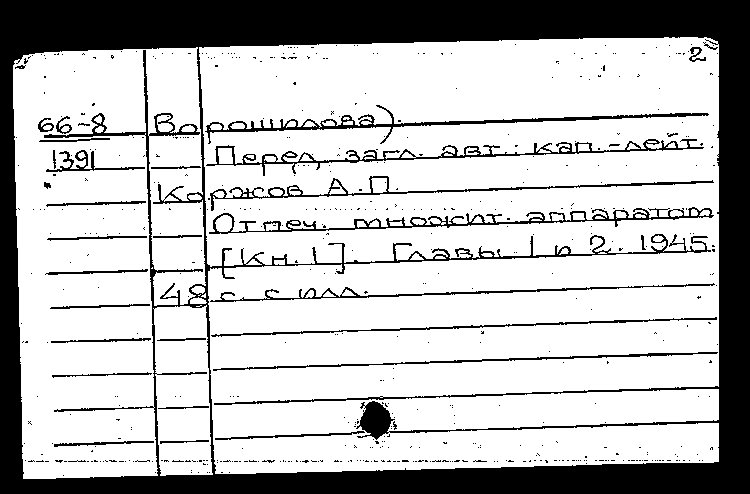 2
66-8 Ворошилова).
1391 Перед загл. авт.: кап.-лейт.
Коржов А.П.
Отпеч. множит. аппаратом
[Кн. 1]. Главы 1 и 2. 1945.
48 с. с илл.